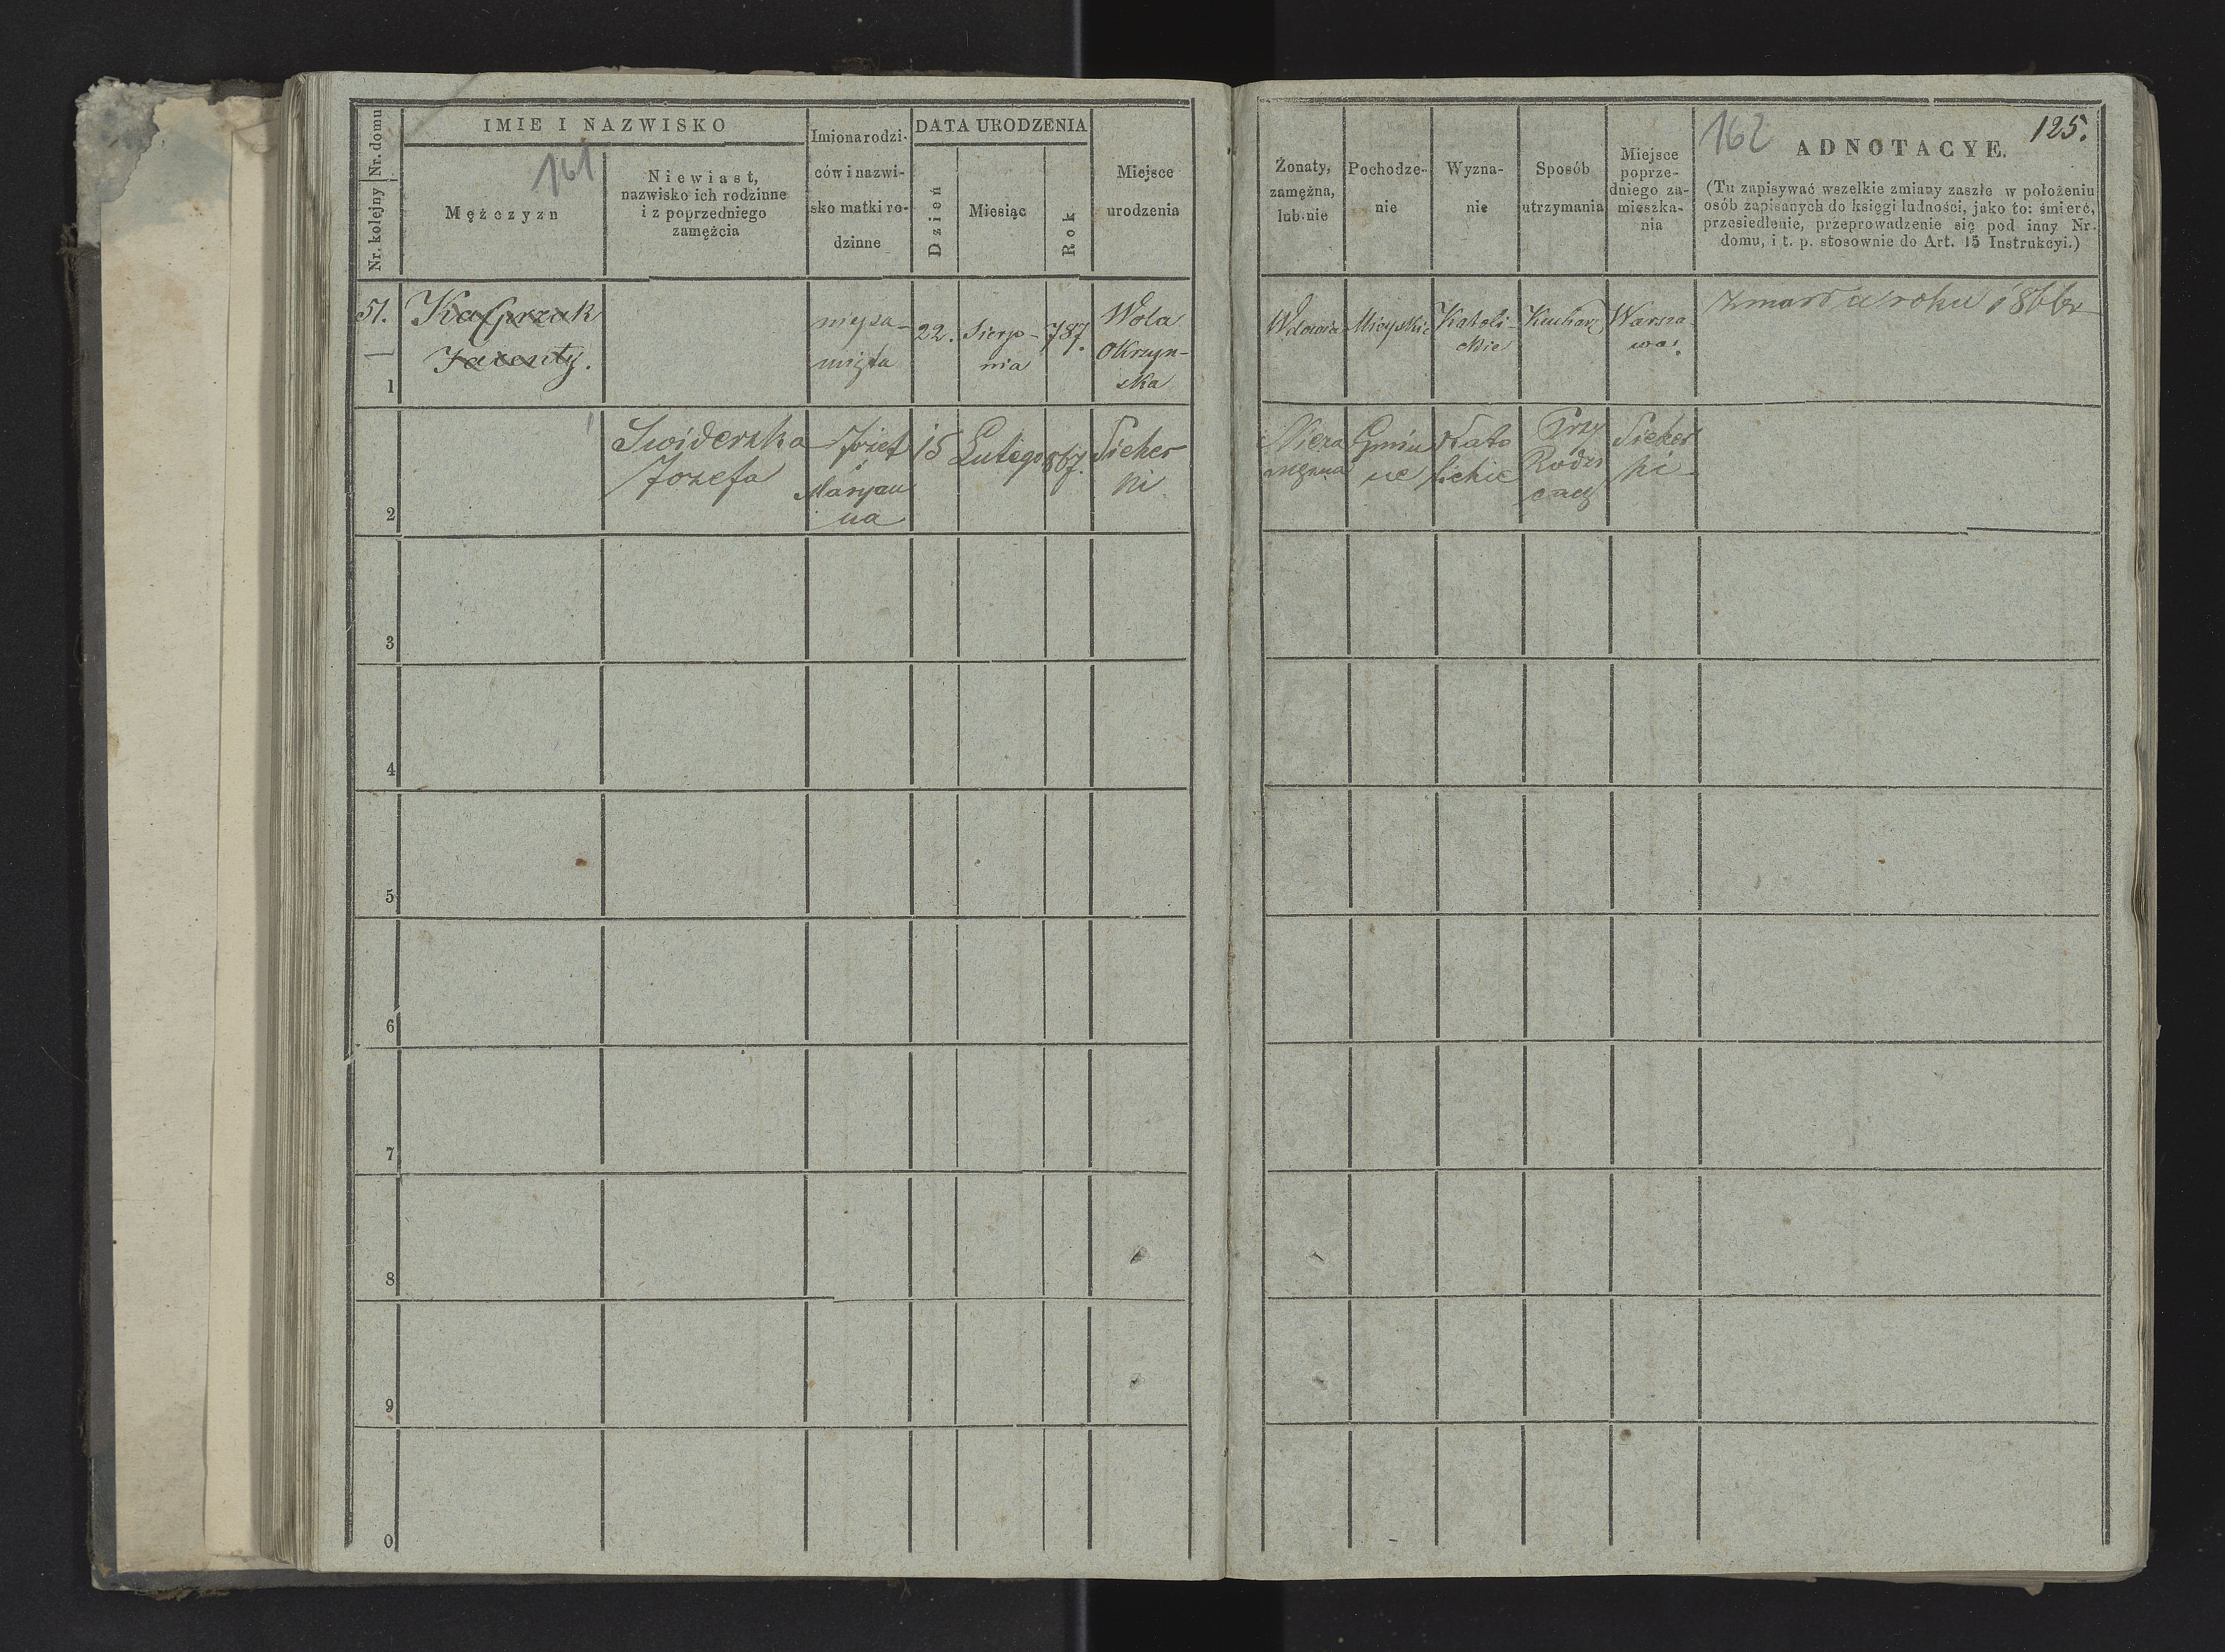 Nr. domu
Nr. kolejny
IMIE I NAZWISKO
161
Mężczyzn
Niewiast,
nazwisko ich rodzinne
i z poprzedniego
zamężcia
Imiona rodzi-
ców i nazwi-
sko matki ro-
dzinne
DATA URODZENIA
Dzień
Miesiąc
Rok
Miejsce
urodzenia
51.
1
Kacprzak
Jacenty.
niepa-
mięta
22.
Sierp-
nia
787.
Wola
Okrzyn-
ska
2
Swiderska
Jozefa
Józef
i
Maryan
na
15
Lutego
867.
Siekier
ki
3
4
5
6
7
8
9
0
162
125.
Żonaty,
zamężna,
lub nie
Pochodze-
nie
Wyzna-
nie
Sposób
utrzymania
Miejsce
poprze-
dniego za-
mieszka-
nia
ADNOTACYE.
(Tu zapisywać wszelkie zmiany zaszłe w położeniu
osób zapisanych do księgi ludności, jako to: śmierć,
przesiedlenie, przeprowadzenie się pod inny Nr.
domu, i t. p. stosownie do Art. 15 Instrukcyi.)
Wdowiec
Mieyskie
Katoli-
ckie
Kucharz
Warsza-
wa.
Zmarł w roku 1866r
Nieza
mężna
Gmin
ne
Kato
lickie
Przy
Rodzi
cach
Siekier
ki